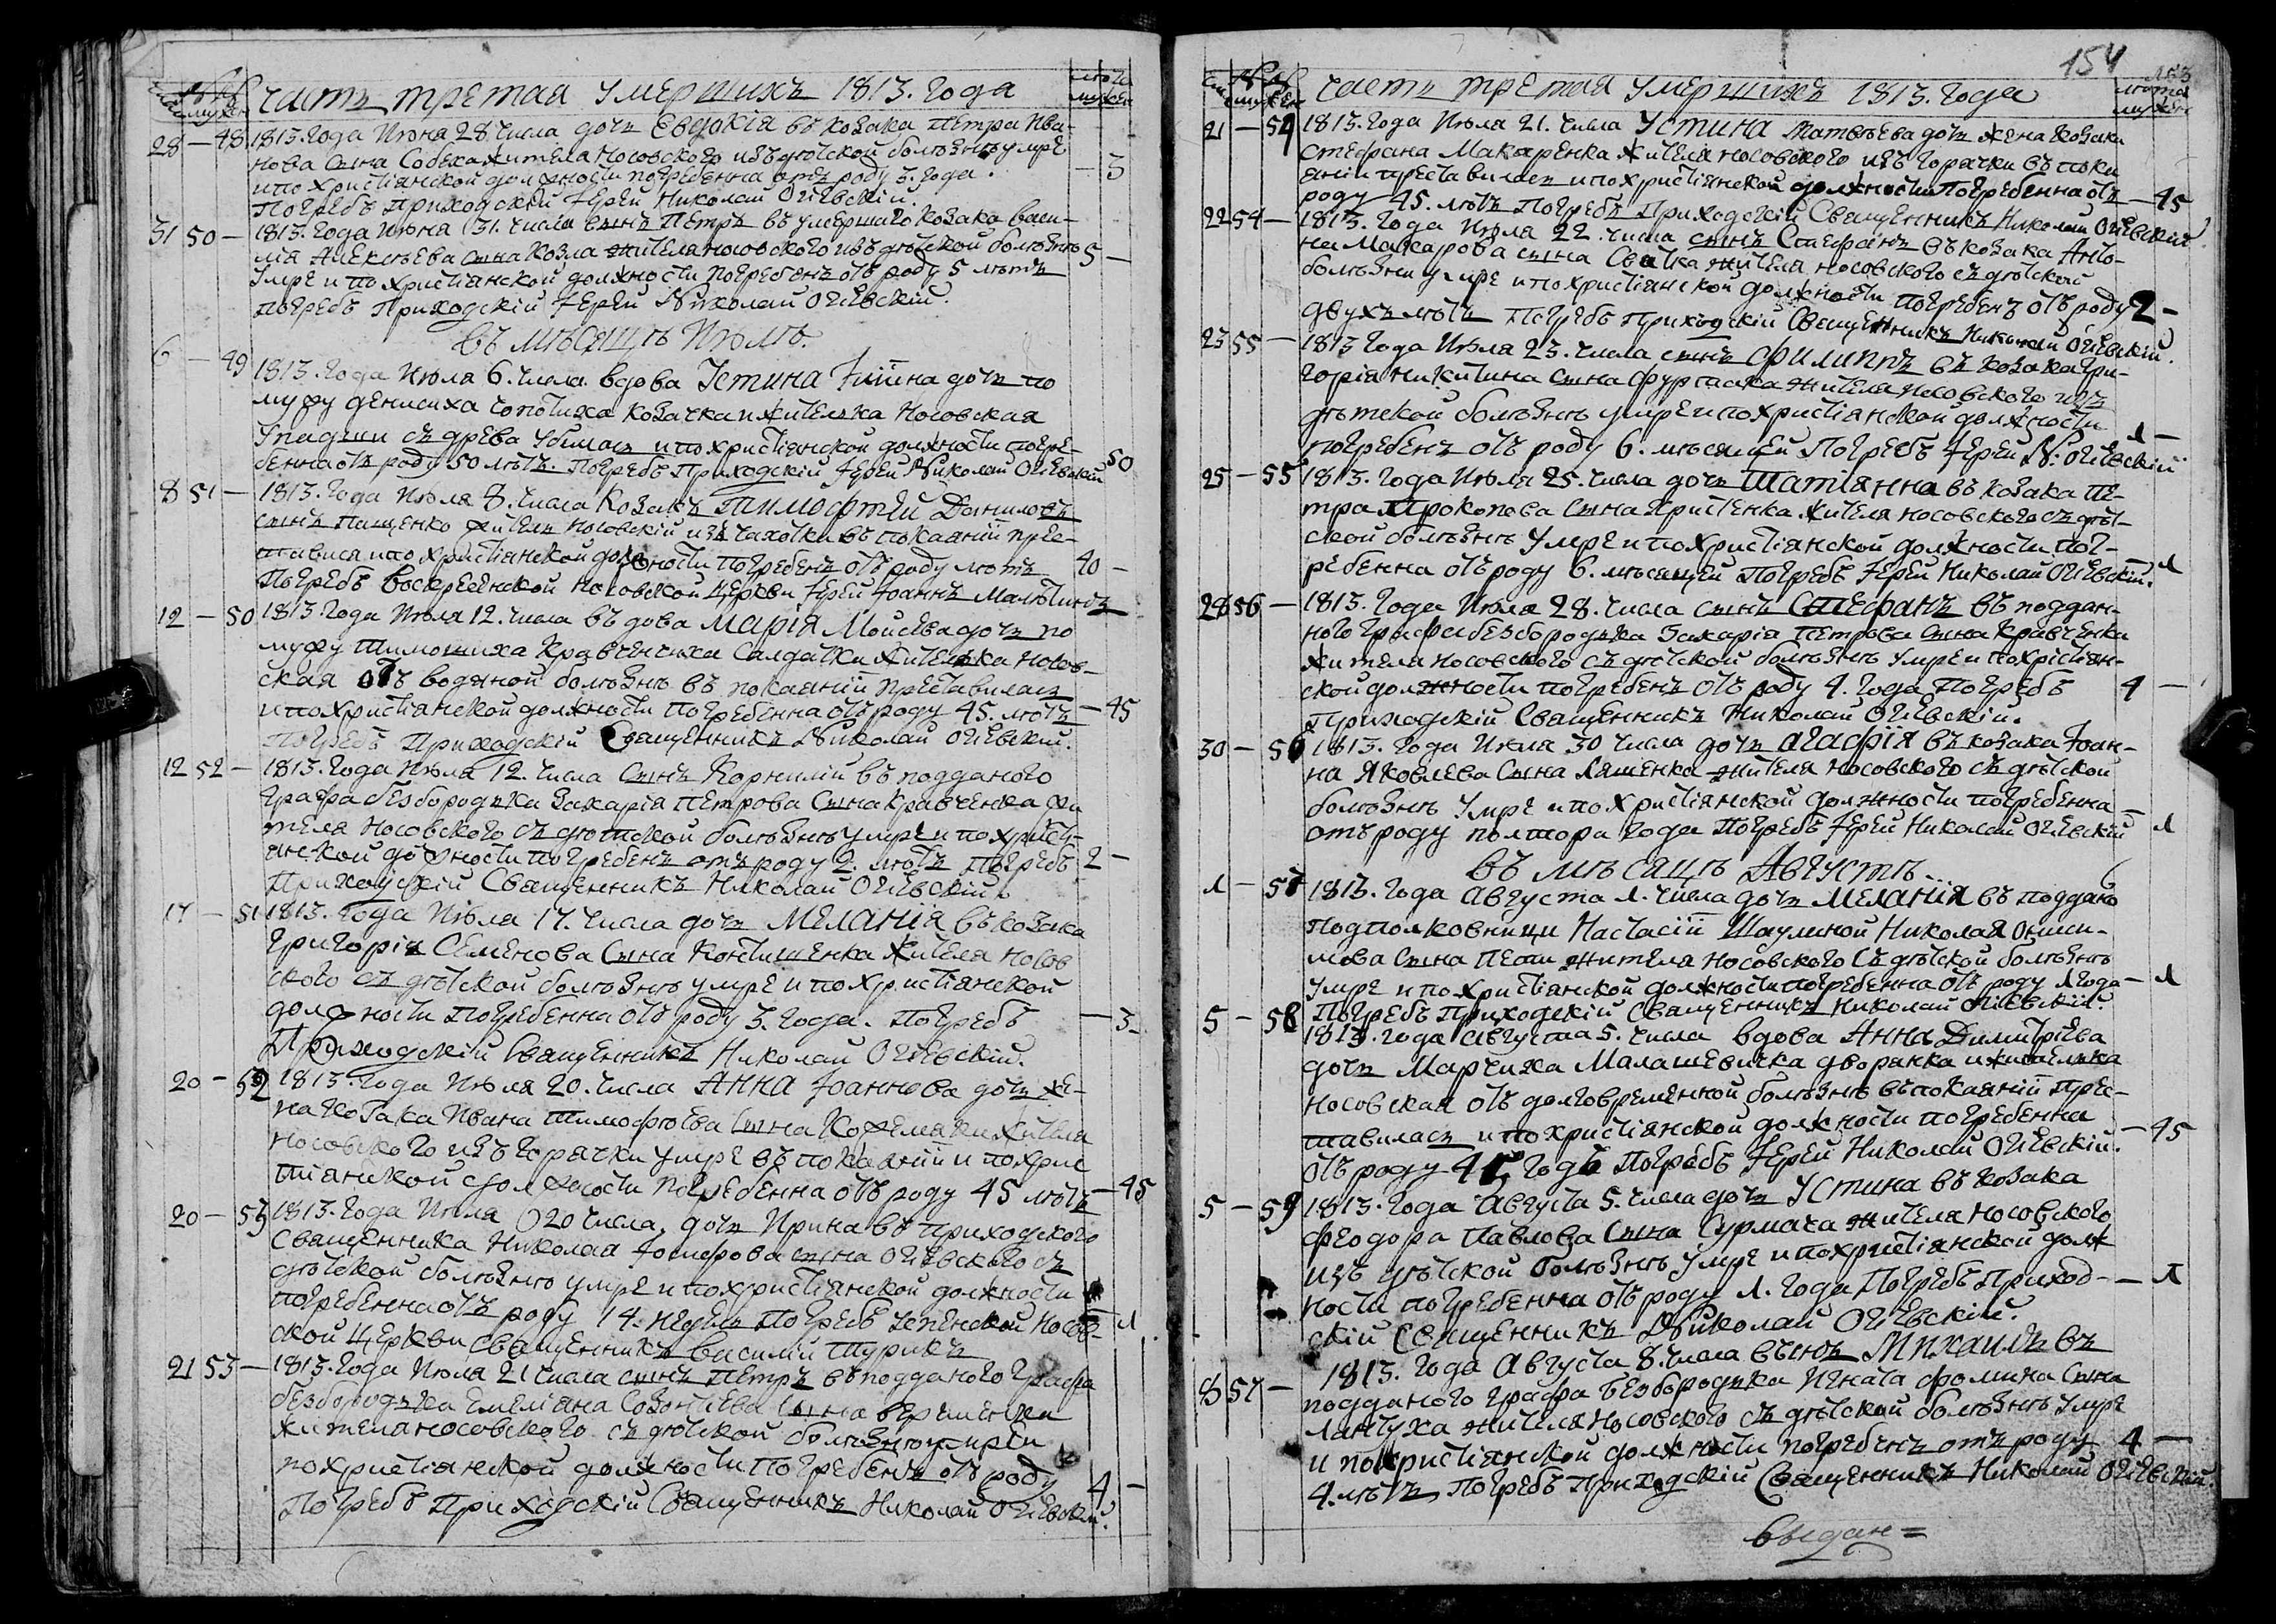 часть третая умершихъ 1813. Года
28 — 48 1813. Года Июня 28. Числа дочь Евдокія въ козака Петра Ива-
нова сына Собека жителя Носовского изъ дѣтской болѣзнѣ умре
и по христіянской должности погребенна отъ роду 3. Года. — 3
Погребъ Приходскій Іерей Николай Огіевскій.
31 50 — 1813. Года Июня 31. Числа сынъ Петръ въ умершаго козака васи-
лія Алексѣева сына Козла жителя носовского изъ дѣтской болѣзнѣ 5 —
умре и по Христіянской должности погребенъ отъ роду 5 лѣтъ
погребъ Приходскій Іерей Николай Огіевскій.
въ мѣсяцѣ Июлѣ.
6 — 49 1813. Года Июля 6. Числа вдова Устина дочь по
мужу денисиха козачка и жителька Носовская
упадши съ древа убилась и по христіянской должности погре-
бенна отъ роду 50 лѣтъ. Погребъ Приходскій Іерей Николай Огіевскій 50
8 51 — 1813. Года Июля 8. Числа Козакъ Тимофтей Даниловъ
сынъ Пащенко житель Носовскій изъ чахотки въ покаяніи пре-
ставися и по христіянской должности погребенъ отъ роду лѣтъ 40 —
Погребъ Воскресенской Носовской Церкви Іерей Іоаннъ Малютинъ
12 — 50 1813. Года Июля 12. Числа въдова Марія Моисѣева дочь по
мужу Тимошиха Кравченчиха Салдатка Жителька Носов-
ская отъ водяной болѣзнѣ въ покаяніи преставилась
и по христіянской должности погребенна отъ роду 45. лѣтъ — 45
Погребъ Приходскій Священникъ Николай Огіевскій.
12 52 — 1813. Года Июля 12. Числа Сынъ Корнилій въ подданого
Графа безбородька Захарія Петрова Сына Кравченка жи
теля Носовского съ дѣтской болѣзнѣ умре и по христі-
янской должности погребенъ отъ роду 2. лѣтъ Погребъ 2 —
Приходскій Священникъ Николай Огіевскій.
17 — 51 1813. Года Июля 17. Числа дочь Меланія въ козака
Григорія Семенова Сына Жителя Носов
ского съ дѣтской болѣзнѣ умре и по христіянской
должности погребенна отъ роду 3. Года. Погребъ — 3
Приходскій Священникъ Николай Огіевскій.
20 — 52 1813. Года Июля 20. Числа Анна Іоаннова дочь же-
на козака Ивана Тимофтѣева Сына Кожемяки Жителя
носовского изъ горячки умре въ покаяніи и по хрис
тіянской должности погребенна отъ роду 45 лѣтъ — 45
20 — 53 1813. Года Июля 20 Числа, дочь Ирина въ приходского
Священника Николая сына Огіевского съ
дѣтской болѣзнѣ умре и по христіянской должности
погребенна отъ роду 14. недель Погребъ Успенской Носов- 1
ской Церкви Священникъ Василій Турикъ
21 53 — 1813. Года Июля 21 Числа сынъ Петръ въ подданого Графа
безбородька Емеліяна Созонтіева Сына веремѣнки
жителя носовского съ дѣтской болѣзнѣ умре и
по христіянской должности погребенъ отъ роду 4 —
Погребъ Приходскій Священникъ Николай Огіевскій.
154
часть третая умершихъ 1813. Года
21 — 54 1813. Года Июля 21. Числа Устина Матвѣева дочь жена козака
Стефана Макаренка жителя носовского изъ горячки въ пока
яніи преставилась и по христіянской должности погребенна отъ
роду 45. лѣтъ Погребъ Приходскій Священникъ Николай Огіевскій — 45
22 54 — 1813. Года Июля 22. Числа сынъ Стефанъ въ козака Анто-
на Макарова сына жителя носовского съ дѣтской
болѣзни умре и по христіянской должности погребенъ отъ роду 2 —
двухъ лѣтъ Погребъ Приходскій Священникъ Николай Огіевскій.
23 55 — 1813 Года Июля 23. Числа сынъ Филиппъ въ козака Гри-
горія Никитина Сына жителя Носовского изъ
дѣтской болѣзнѣ умре и по христіянской должности
погребенъ отъ роду 6. мѣсяцей Погребъ Іерей Н: Огіевскій 1 —
25 — 55 1813. Года Июля 25. Числа дочь Татіянна въ козака Пе-
тра Прокопова Сына Христенка жителя носовского съ дѣт-
ской болѣзнѣ умре и по христіянской должности пог-
ребенна отъ роду 6. мѣсяцей Погребъ Іерей Николай Огіевскій. — 1
28 56 — 1813. Года Июля 28. Числа сынъ Стефанъ въ поддан-
ного Графа безбородька Захарія Петрова Сына Кравченка
жителя носовского съ дѣтской болѣзнѣ умре и по хрістіян-
ской должности погребенъ отъ роду 4. Года Погребъ 4 —
Приходскій Священникъ Николай Огіевскій.
30 — 56 1813. Года Июля 30 Числа дочь Агафія въ козака Іоан-
на Яковлева Сына Ляшенка жителя носовского съ дѣтской
болѣзнѣ умре и по христіянской должности погребенна
отъ роду полтора Года Погребъ Іерей Николай Огіевскій — 1
въ мѣсяцѣ Августѣ
1 — 57 1813. Года Августа 1. Числа дочь Меланія въ поддано
подполковници Настасіи Шаулиной Николая
Сына жителя носовского съ дѣтской болѣзнѣ
умре и по христіянской должности погребенна отъ роду 1 Года — 1
Погребъ Приходскій Священникъ Николай Огіевскій.
5 — 58 1813. Года Августа 5. Числа вдова Анна Димитріева
дочь Марчиха Малашевичка дворанка и жителька
носовская отъ долговременной болѣзнѣ въ покаяніи прес-
тавилась и по христіянской должности погребенна — 45
отъ роду 45 Годъ Погребъ Іерей Николай Огіевскій.
5 — 59 1813. Года Августа 5. Числа дочь Устина въ козака
Феодора Павлова Сына Сурмача жителя носовского
изъ дѣтской болѣзнѣ умре и по христіянской долж
ности погребенна отъ роду 1. Года Погребъ Приход- — 1
скій Священникъ Николай Огіевскій.
8 57 — 1813. Года Августа 8. Числа сынъ Михаилъ въ
подданого Графа Безбородька Игната Фомина Сына
Лантуха жителя носовского съ дѣтской болѣзнѣ умре
и по христіянской должности погребенъ отъ роду 4 —
4. лѣтъ Погребъ Приходскій Священникъ Николай Огіевскій.